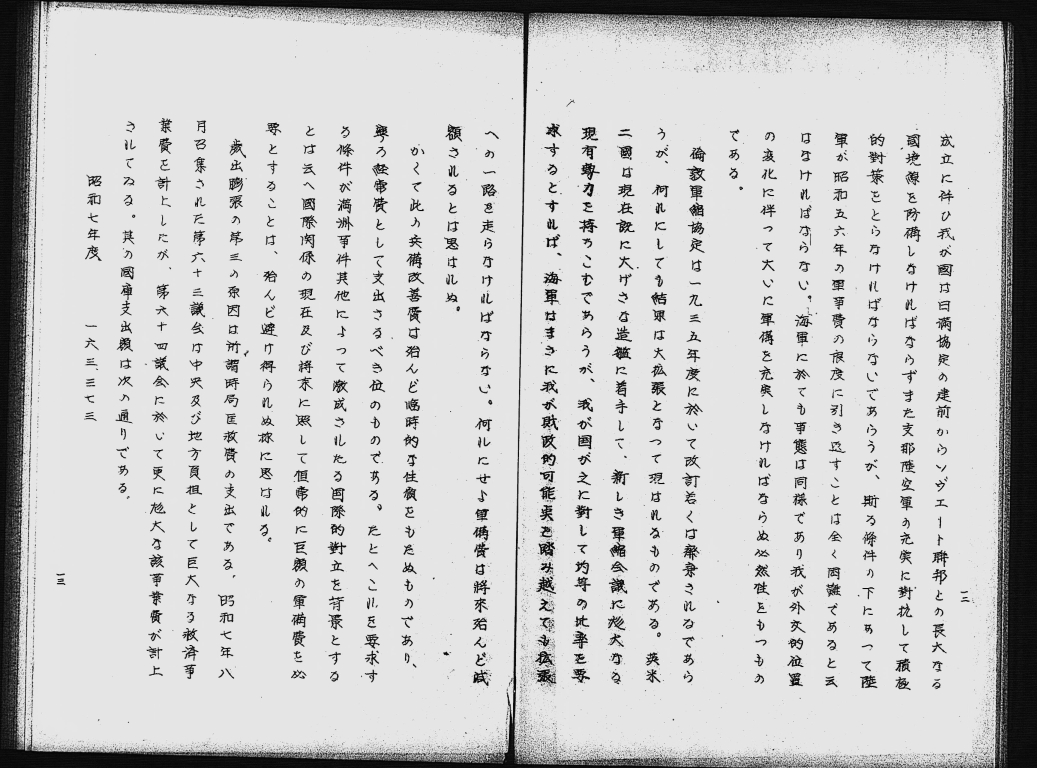 成立に伴ひ我が國は日滿協定の建前からソヴエート聯邦との長大なる
國境線を防備しなければならずまた支那陸空軍の充実に對抗して積極
的對策をとらなければならないであらうが、斯る條件の下にあつて陸
軍が昭和五六年の軍事費の限度に引き返すことは全く困難であると云
はなければならない。海軍に於ても事態は同様であり我が外交的位置
の変化に伴つて大いに軍備を充実しなければならぬ必然性をもつもの
である。
倫敦軍縮協定は一九三五年度に於いて改訂若くは廃棄されるであら
うが、何れにしても結果は大拡張となつて現はれるものである。英米
二國は現在既に大げさな造艦に着手して、新しき軍縮会議に尨大なる
現有勢力を持ちこむであらうが、我が国が之に對して均等の比率を要
求するとすれば、海軍はまさに我が財政的可能実を踏み越えても拡張
一二
への一路を走らなければならない。何れにせよ軍備費は將來殆んど減
額されるとは思はれぬ。
かくて此の兵備改善費は殆んど臨時的な性質をもたぬものであり、
寧ろ経常費として支出さるべき位のものである。たとへこれを要求す
る條件が滿洲事件其他によつて激成されたる国際的對立を背景とする
とは云へ國際関係の現在及び將來に照して恒常的に巨額の軍備費を必
要とすることは、殆んど避け得られぬ様に思はれる。
歳出膨張の第三の原因は所謂時局匡救費の支出である。昭和七年八
月召集された第六十三議会は中央及び地方負担として巨大なる救済事
業費を計上したが、第六十四議会に於いて更に尨大な該事業費が計上
されてゐる。其の國庫支出額は次の通りである。
昭和七年度　一六三、三七三
一三